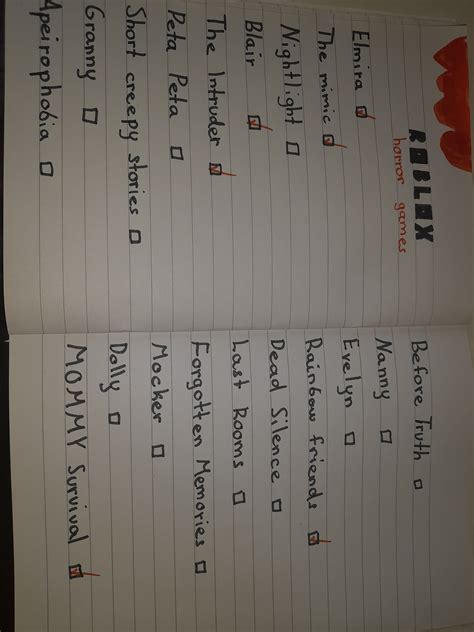 ROBLOX
horror games
Elmira ☑
The mimic ☑
Nightlight ☐
Blair ☑
The Intruder ☑
Peta Peta ☐
Short creepy stories ☐
Granny ☐
Apeirophobia ☐
Before Truth ☐
Nanny ☐
Evelyn ☐
Rainbow friends ☑
Dead Silence ☐
Last Rooms ☐
Forgotten Memories ☐
Mocker ☐
Dolly ☐
MOMMY Survival ☑